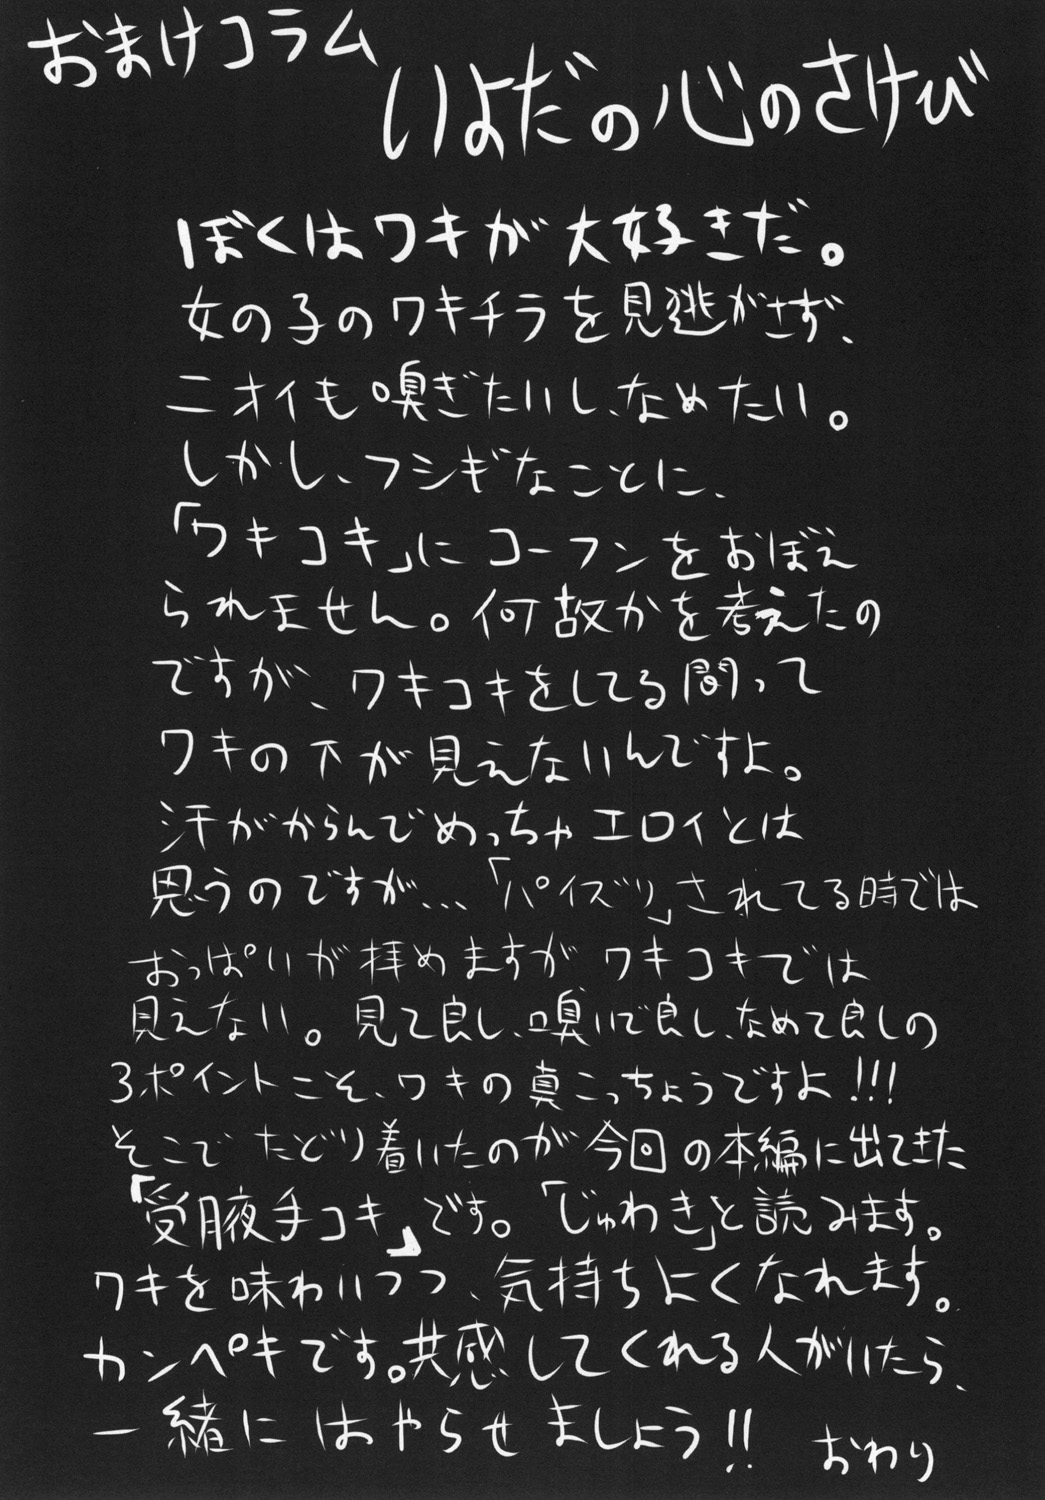 おまけコラム
いよだの心のさけび
ぼくはワキが大好きだ。
女の子のワキチラを見逃がさず、
ニオイも嗅ぎたいし、なめたい。
しかし、フシギなことに、
「ワキコキ」にコーフンをおぼえ
られません。何故かを考えたの
ですが、ワキコキをしてる間って
ワキの下が見えないんですよ。
汗がからんでめっちゃエロイとは
思うのですが…「パイズリ」されてる時では
おっぱいが拝めますがワキコキでは
見えない。見て良し、嗅いで良し、なめて良しの
3ポイントこそ、ワキの真こっちょうですよ!!!
そこでたどり着いたのが今回の本編に出てきた
「受腋手コキ」です。「じゅわき」と読みます。
ワキを味わいつつ、気持ちよくなれます。
カンペキです。共感してくれる人がいたら、
一緒にはやらせましょう!!
おわり